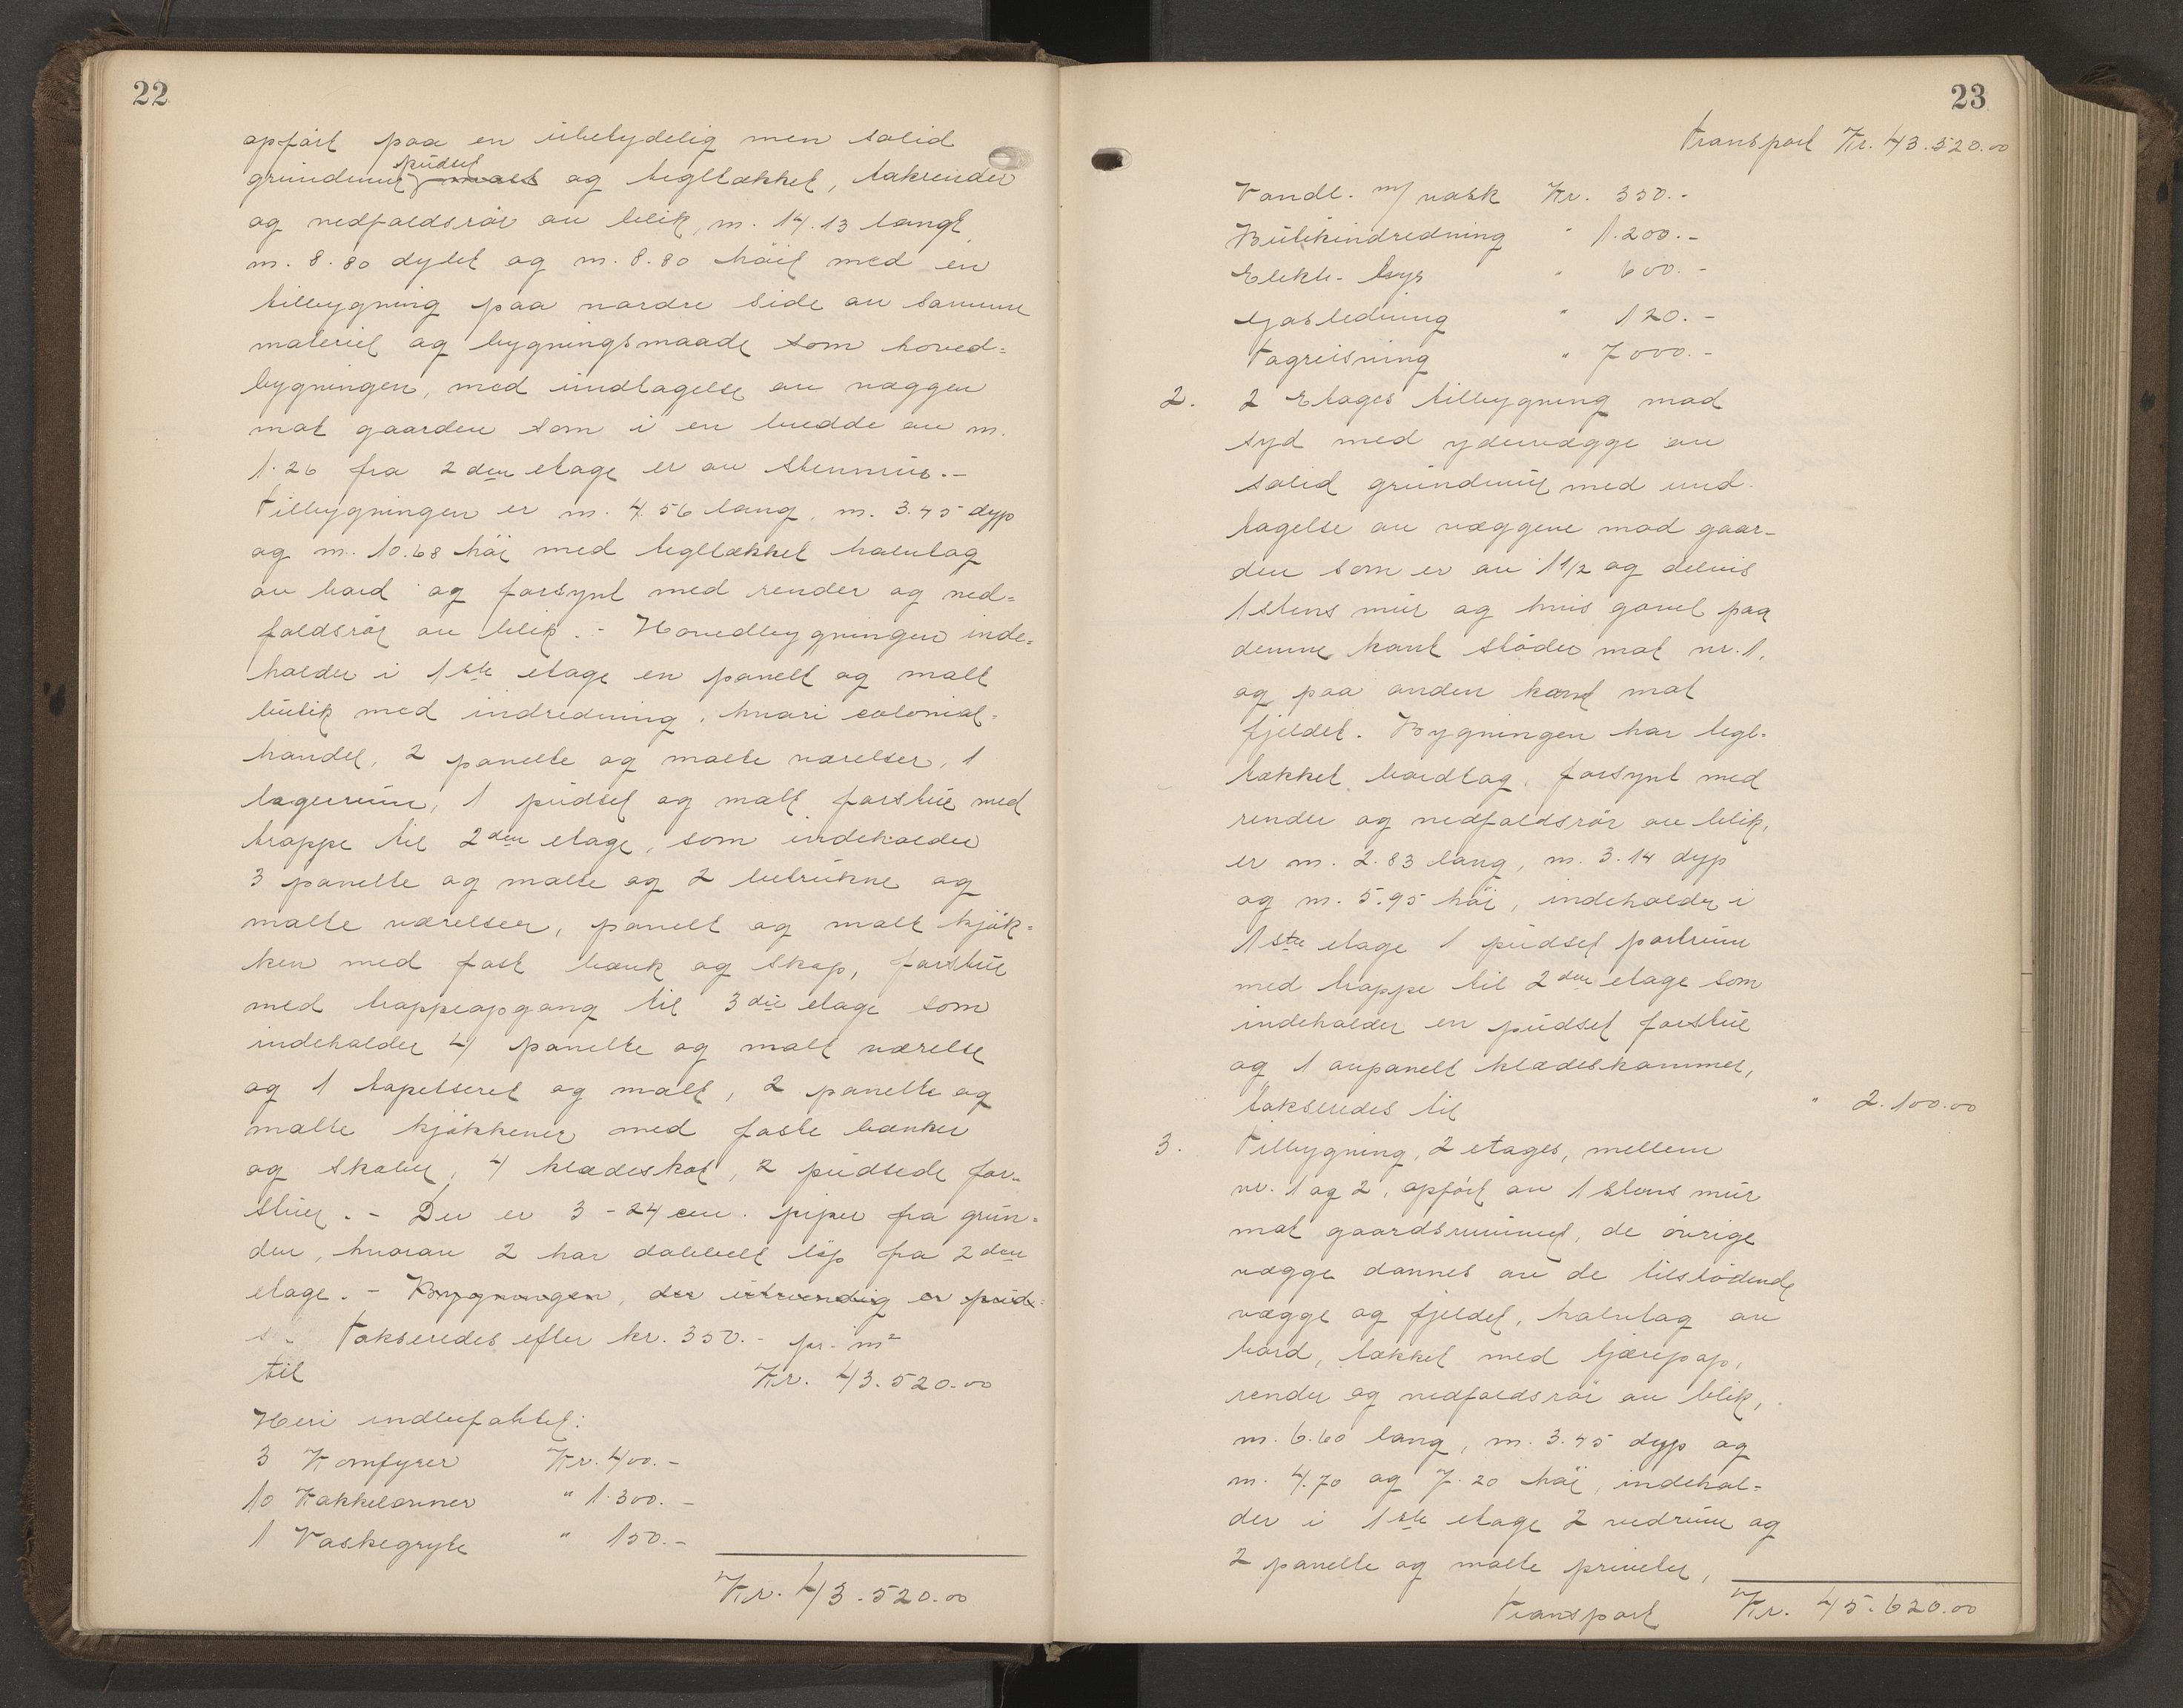 22
opført paa en ubetydelig men solid
pudset
grundmur, malt og tegltækket, takrender
og nedfaldsrør av blik, m. 14.13 langt,
m. 8.80 dybt og m. 8.80 høit med en
tilbygning paa nordre side av samme
materiel og bygningsmaade som hoved=
bygningen, med undtagelse av væggen
mot gaarden som i en bredde av m.
1.26 fra 2den etage er av stenmur.-
Tilbygningen er m. 4.56 lang, m. 3.45 dyp
og m. 10.68 høi med tegltækket halvtag
av bord og forsynt med render og ned=
faldsrør av blik. - Hovedbygningen inde=
holder i 1ste etage en panelt og malt
butik med indredning, hvori colonial=
handel, 2 panelte og malte værelser, 1
lagerrum, 1 pudset og malt forstue med
trappe til 2den etage, som indeholder
3 panelte og malte og 2 betrukne og
malte værelser, panelt og malt kjøk=
ken med fast bænk og skap, forstue
med trappeopgang til 3die etage som
indeholder 4 panelte og malt værelse
og 1 tapetseret og malt, 2 panelte og
malte kjøkkener med faste bænker
og skaber, 4 klædeskot, 2 pudsede for=
stuer. - Der er 3 - 24 cm. piper fra grun=
den, hvorav 2 har dobbelt løp fra 2den
etage. - Bygningen, der utvendig er puds=
s. Takseredes efter kr. 350.- pr. m²
til Kr. 43.520.00
Heri indbefattet:
3 Komfyrer Kr. 400.-
10 Kakkelovner " 1.300.-
1 Vaskegryte " 150.-
Kr. 43.520.00
23
Transport Kr. 43.520.00
Vandl. m/ vask Kr. 350.-
Butikindredning " 1.200.-
Elektr. lys " 600.-
Gasledning " 120.-
Tagreisning " 7000.-
2. 2 Etages tilbygning mod
syd med ydervægge av
solid grundmur med und
tagelse av væggene mod gaar-
den som er av 1 1/2 og delvis
1 stens mur og hvis gavel paa
denne kant støder mot nr. 1,
og paa anden kant mot
fjeldet. Bygningen har tegl-
tækket bordtag, forsynt med
render og nedfaldsrør av blik,
er m. 2.83 lang, m. 3.14 dyp
og m. 5.95 høi, indeholder i
1ste etage 1 pudset portrum
med trappe til 2den etage som
indeholder en pudset forstue
og 1 anpanelt klædeskammer,
takseredes til " 2.100.00
3. Tilbygning, 2 etages, mellem
nr. 1 og 2, opført av 1 stens mur
mot gaardsrummet, de øvrige
vægge dannes av de tilstødende
vægge og fjeldet, halvtag av
bord, tækket med tjærepap,
render og nedfaldsrør av blik,
m. 6.60 lang, m. 3.45 dyp og
m. 4.70 og 7.20 høi, indehol=
der i 1ste etage 2 vedrum og
2 panelte og malte priveter,
Transport Kr. 45.620.00